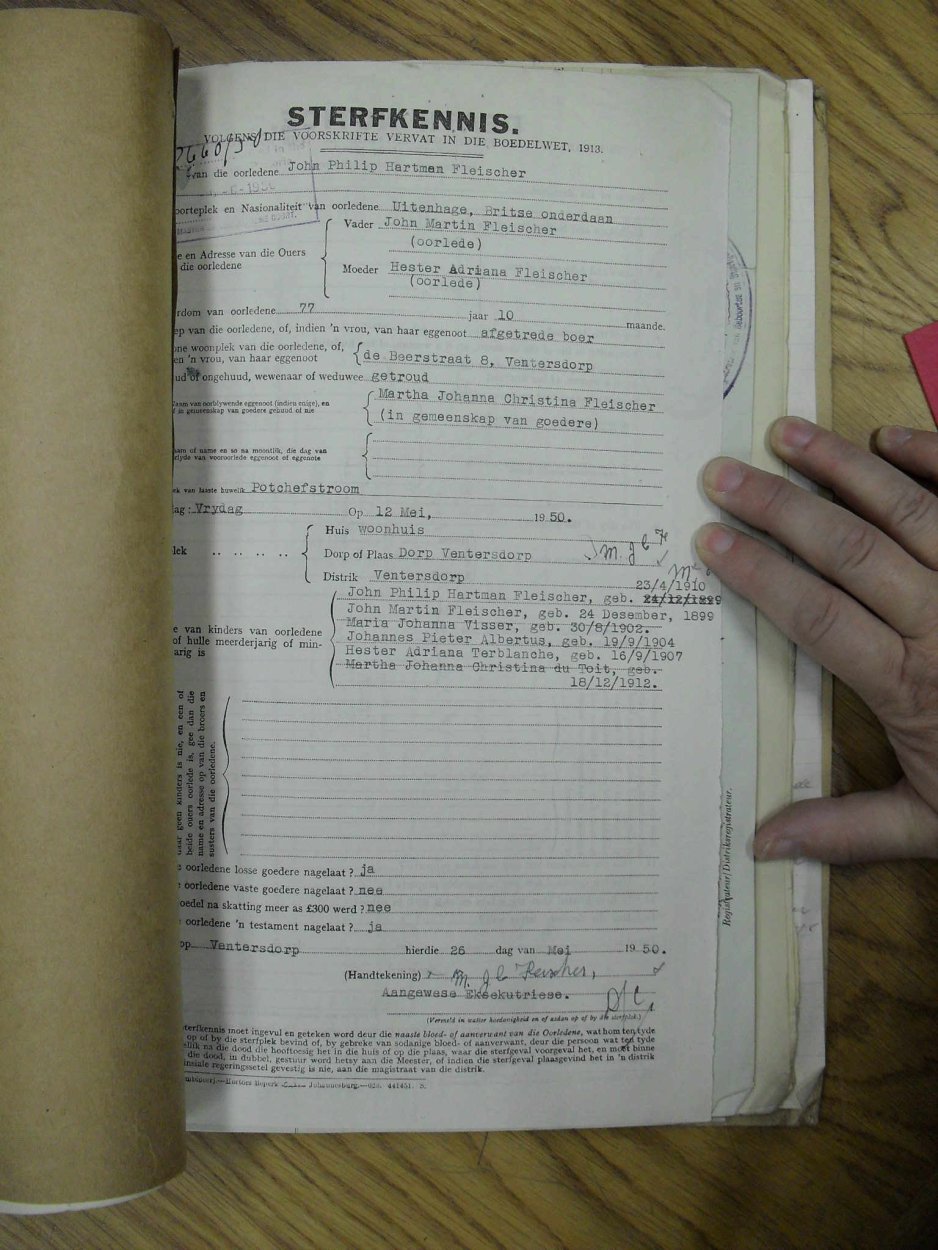 STERFKENNIS.
VOLGENS DIE VOORSKRIFTE VERVAT IN DIE BOEDELWET, 1913.
van die oorledene John Philip Hartman Fleischer
oorteplek en Nasionaliteit van oorledene Uitenhage, Britse onderdaan
Vader John Martin Fleischer
(oorlede)
e en Adresse van die Ouers
die oorledene
Moeder Hester Adriana Fleischer
(oorlede)
rdom van oorledene 77 jaar 10 maande.
ep van die oorledene, of, indien 'n vrou, van haar eggenoot afgetrede boer
one woonplek van die oorledene, of,
en 'n vrou, van haar eggenoot
de Beerstraat 8, Ventersdorp
ud of ongehuud, wewenaar of weduwee getroud
Naam van oorblywende eggenoot (indien enige), en
f in gemeenskap van goedere gehuud of nie
Martha Johanna Christina Fleischer
(in gemeenskap van goedere)
am of name en so na moontlik, die dag van
rlyde van vooroorlede eggenoot of eggenote
ek van laaste huwelik Potchefstroom
ag: Vrydag Op 12 Mei, 1950.
Huis woonhuis
lek
Dorp of Plaas Dorp Ventersdorp
Distrik Ventersdorp
23/4/1910
John Philip Hartman Fleischer, geb. 24/12/1899
John Martin Fleischer, geb. 24 Desember, 1899
Maria Johanna Visser, geb. 30/8/1902.
e van kinders van oorledene
of hulle meerderjarig of min-
arig is
Johannes Pieter Albertus, geb. 19/9/1904
Hester Adriana Terblanche, geb. 16/9/1907
Martha Johanna Christina du Toit, geb.
18/12/1912.
aar geen kinders is nie, en een of
beide ouers oorlede is, gee dan die
name en adresse op van die broers en
susters van die oorledene.
oorledene losse goedere nagelaat? ja
oorledene vaste goedere nagelaat? nee
oedel na skatting meer as £300 werd? nee
oorledene 'n testament nagelaat? ja
op Ventersdorp hierdie 26 dag van Mei 1950.
(Handtekening) M. J. C. Fleischer,
Aangewese Eksekutriese.
(Vermeld in watter hoedanigheid en of asdan op of by die sterfplek.)
terfkennis moet ingevul en geteken word deur die naaste bloed- of aanverwant van die Oorledene, wat hom ten tyde
op of by die sterfplek bevind of, by gebreke van sodanige bloed- of aanverwant, deur die persoon wat ten tyde
lik na die dood die hooftoesig het in die huis of op die plaas, waar die sterfgeval voorgeval het, en moet binne
die dood, in dubbel, gestuur word hetsy aan die Meester, of indien die sterfgeval plaasgevind het in 'n distrik
insiale regeringssetel gevestig is nie, aan die magistraat van die distrik.
Johannesburg.
Registrateur/Distriksregistrateur.